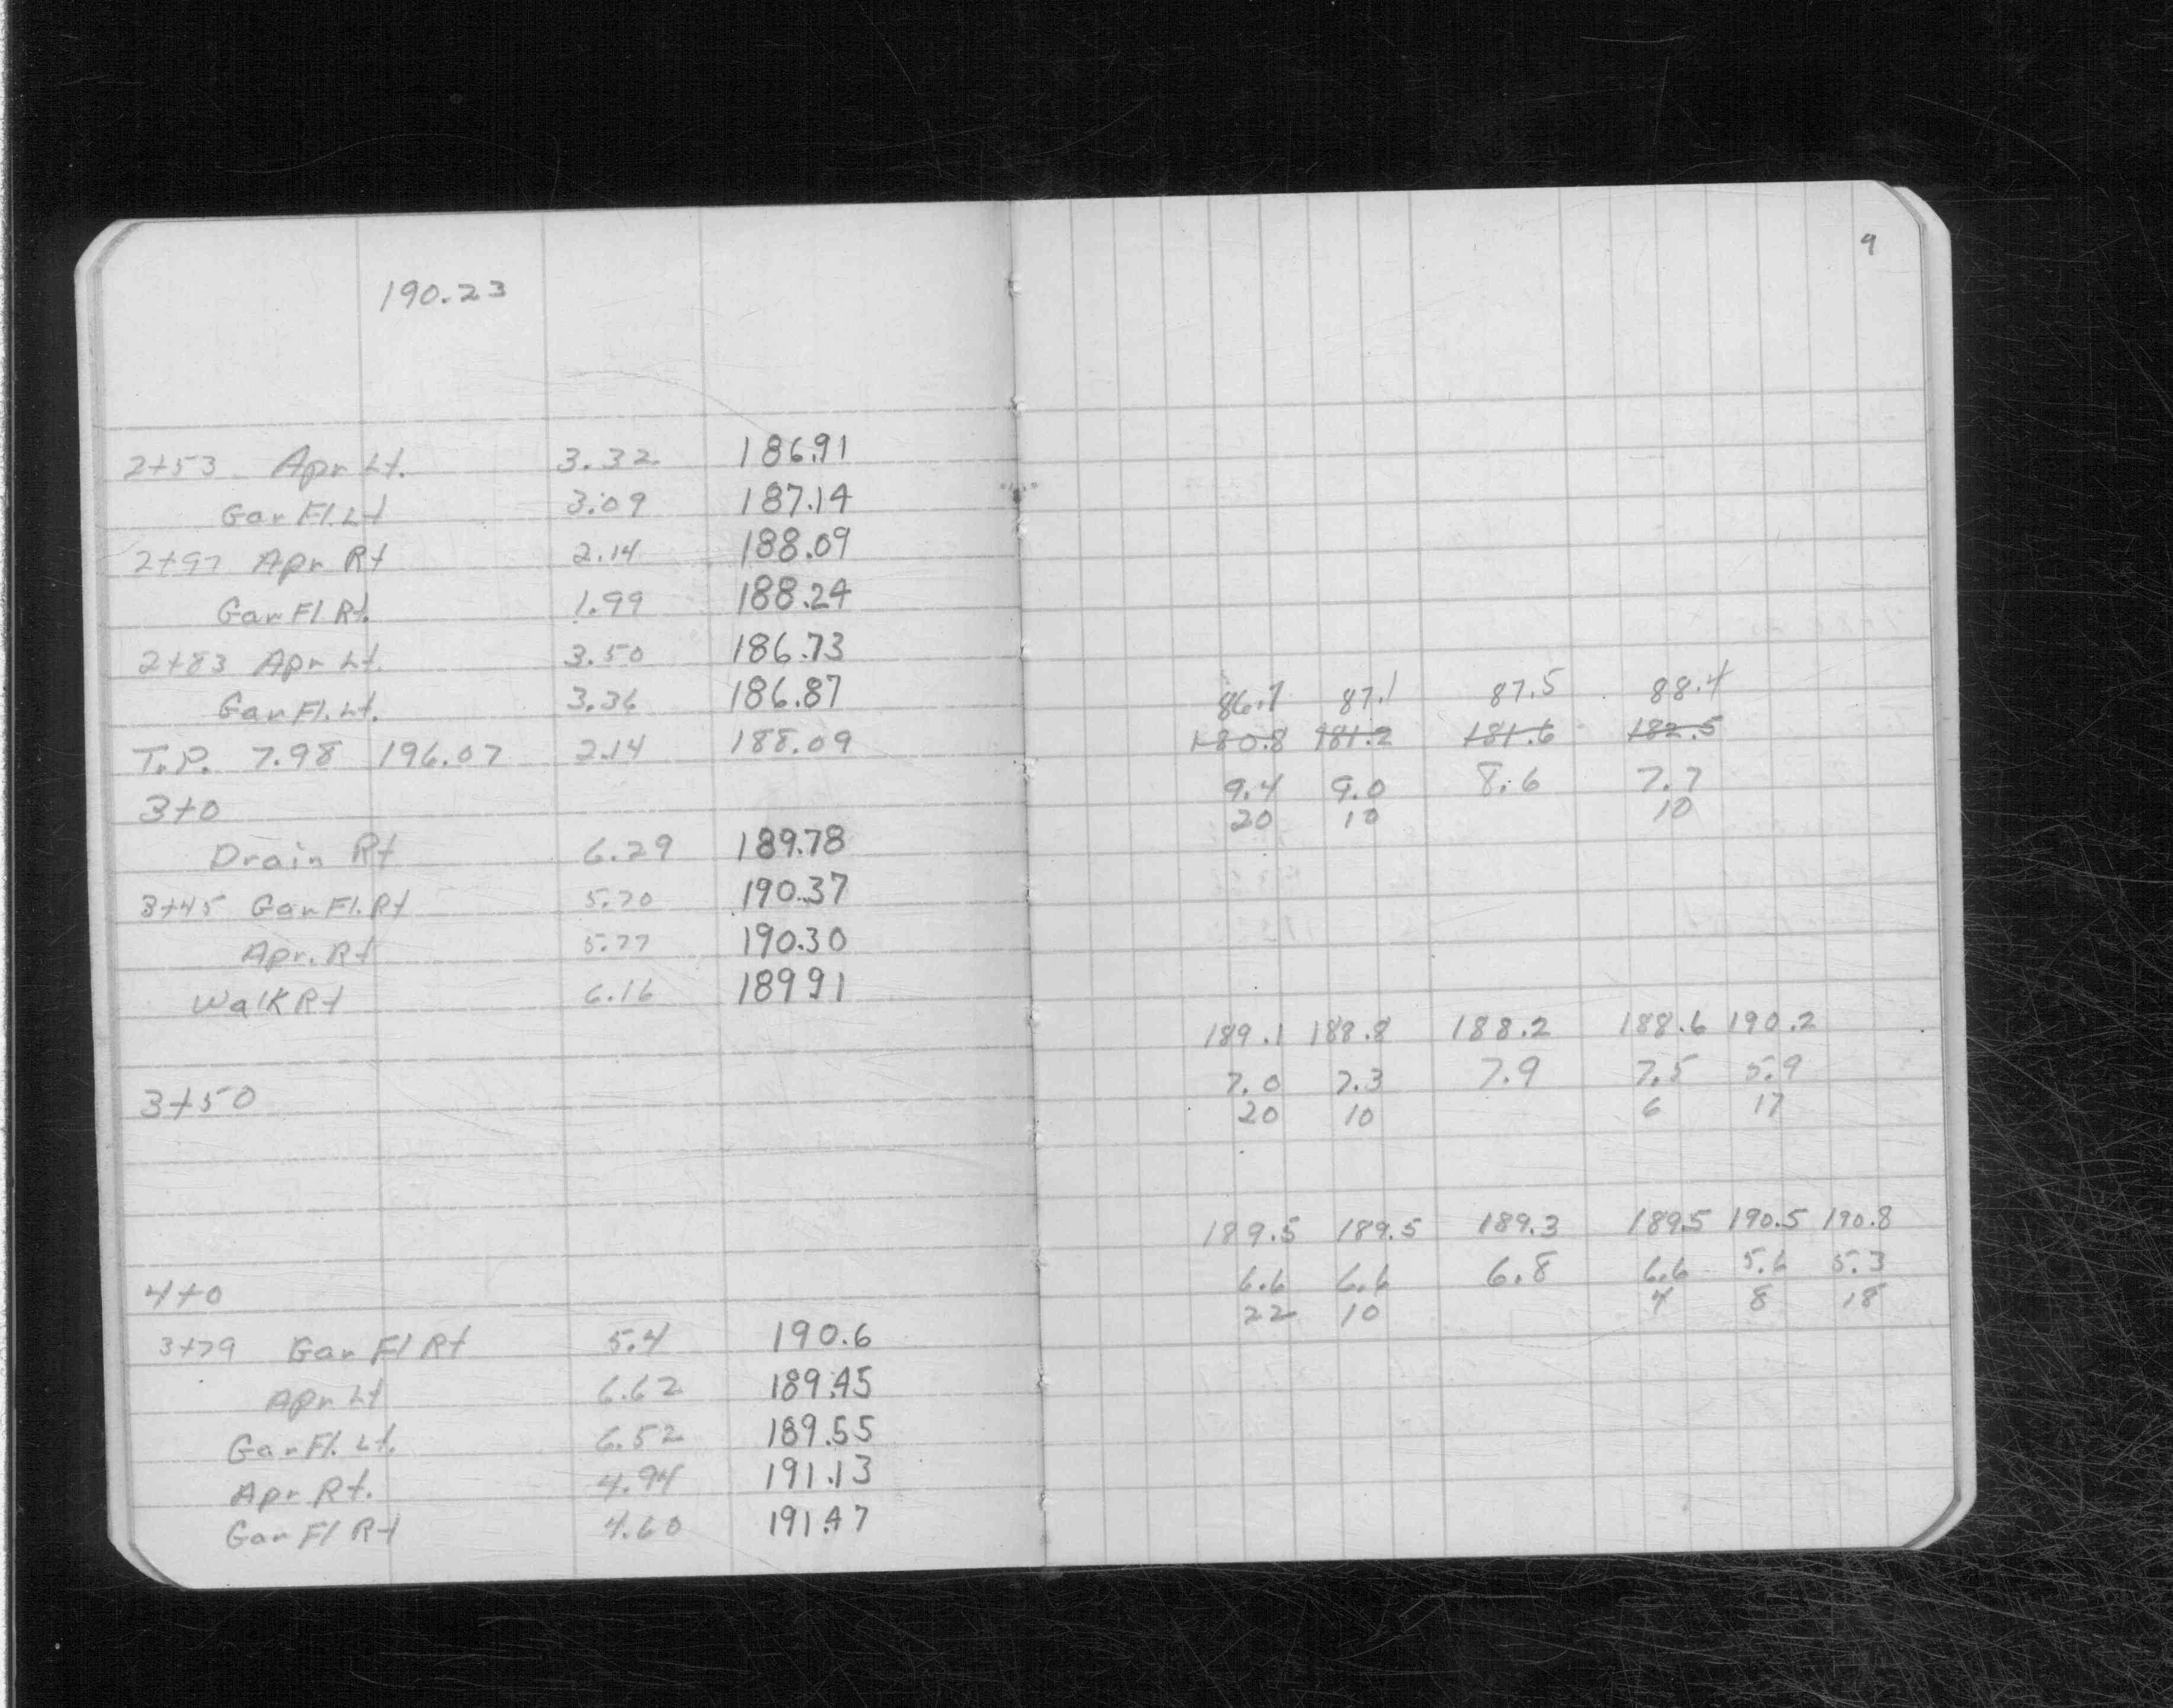 190.23
2+53 Apr Lt. 3.32 186.91
Gar Fl. Lt 3.09 187.14
2+97 Apr Rt 2.14 188.09
Gar Fl Rt. 1.99 188.24
2+83 Apr Lt. 3.50 186.73
Gar Fl. Lt. 3.36 186.87
T.P. 7.98 196.07 2.14 188.09
3+0
Drain Rt 6.29 189.78
3+45 Gar Fl. Rt 5.70 190.37
Apr. Rt 5.77 190.30
Walk Rt 6.16 189.91
3+50
4+0
3+79 Gar Fl Rt 5.4 190.6
Apr Lt 6.62 189.45
Gar Fl. Lt. 6.52 189.55
Apr Rt. 4.94 191.13
Gar Fl Rt 4.60 191.47
9
86.7 87.1 87.5 88.4
180.8 181.2 181.6 182.5
9.4 9.0 8.6 7.7
20 10 10
189.1 188.8 188.2 188.6 190.2
7.0 7.3 7.9 7.5 5.9
20 10 6 17
189.5 189.5 189.3 189.5 190.5 190.8
6.6 6.6 6.8 6.6 5.6 5.3
22 10 4 8 18